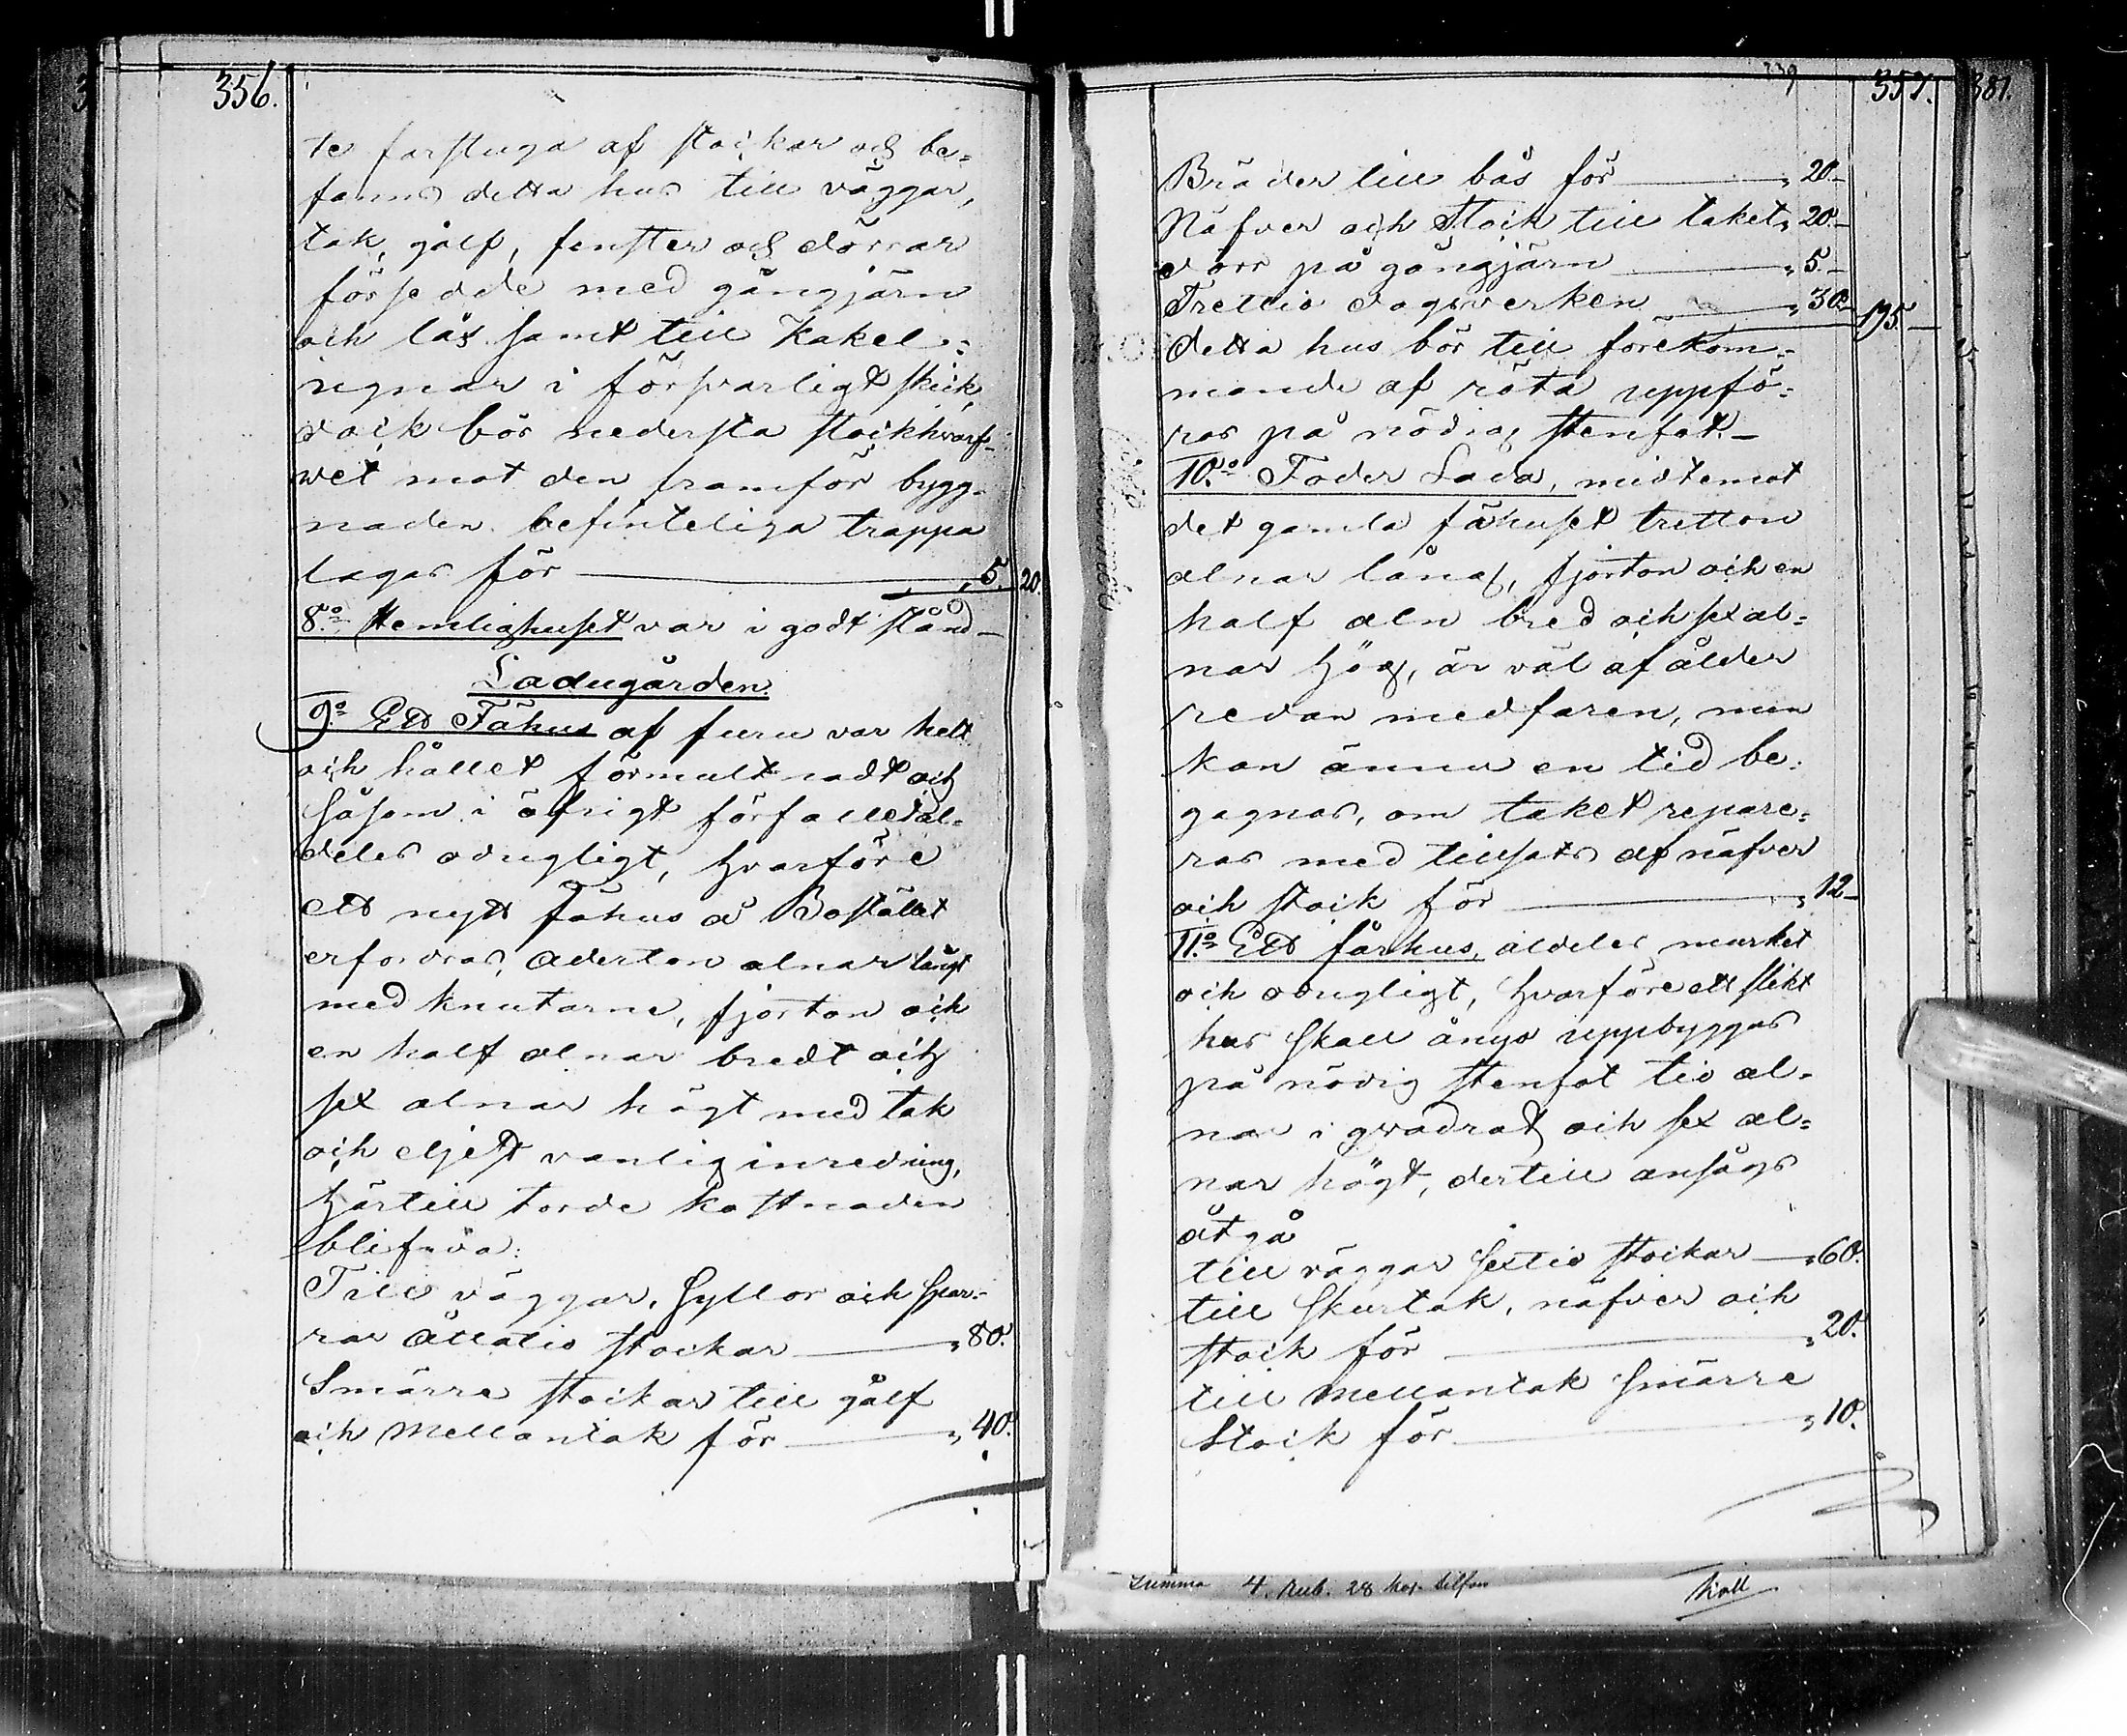 356.
te farstuga af stockar och be=
fanns detta hus till väggar,
tak, gålf, fenster och dörrar
försedde med gångjärn
och lås samt till Kakel=
ugnar i försvarligt skick,
dock bör nedersta stockhvarf=
vet mot den framför bygg=
naden befinteliga trappa
lagas för „ 5. 20.
8:o Hemlighuset var i godt stånd_
Ladugården.
9:o Ett Fähus af furu var helt
och hållet förmultnadt och
såsom i öfrigt förfallet al=
deles odugligt, hvarföre
ett nytt Fähus å Bostället
erfordras, aderton alnar långt
med knutarne, fjorton och
en half alnar bredt och
sex alnar högt med tak
och eljest vanlig inredning,
härtill torde kostnaden
blifva:
Till väggar, Syllor och spar=
rar åttatio stockar „ 80.
Smärre stockar till gålf
och Mellantak för „ 40.
339
357.
381.
Bräder till bås för „ 20._
Näfver och Stock till taket „ 20._
dörr på gångjärn „ 5._
Trettio dagsverken „ 30._ 195._
detta hus bör till förekom=
mande af röta uppfö=
ras på nödig stenfot._
10:o Foder Lada, midtemot
det gamla fähuset tretton
alnar lång, fjorton och en
half aln bred och sex al=
nar hög, är väl af ålder
redan medfaren, men
kan ännu en tid be=
gagnas, om taket repare=
ras med tillsats af näfver
och stock för „ 12_
11:o Ett fårhus, aldeles murket
och odugligt, hvarföre ett slikt
hus skall ånyo uppbyggas
på nödig stenfot tio al=
nar i qvadrat och sex al=
nar högt, dertill ansågs
åtgå
till väggar sextio stockar „ 60.
till Skurtak, näfver och
stock för „ 20.
till Mellantak smärre
Stock för „ 10.
Summa 4. Rub. 28 kop. silfver